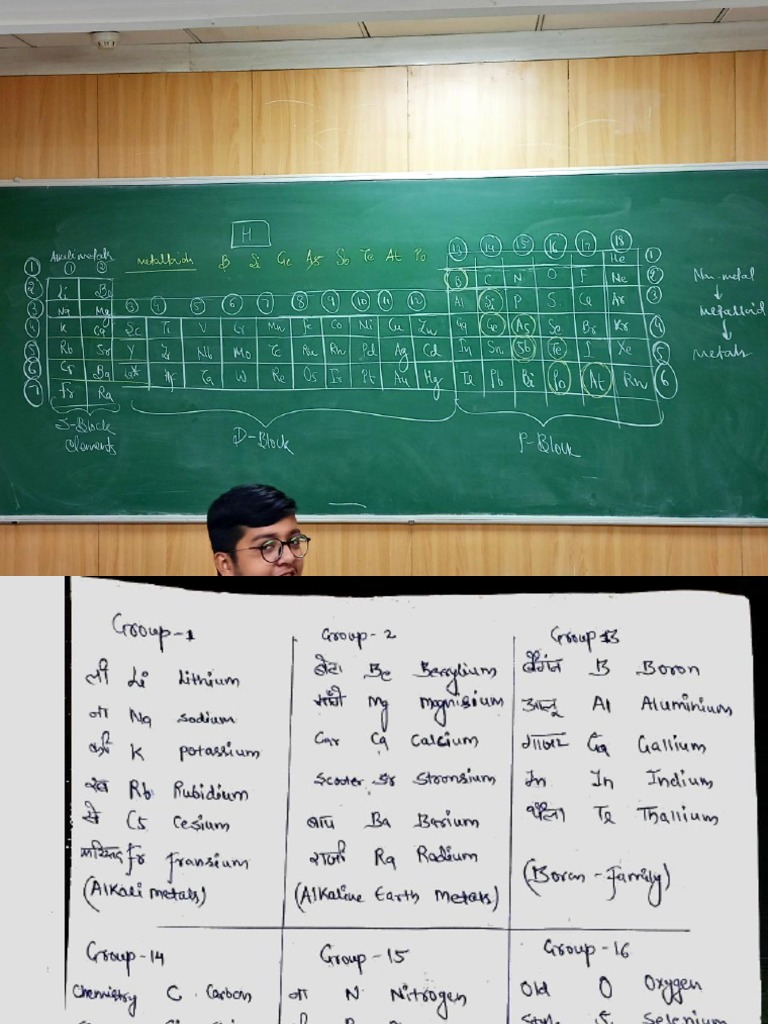 H
metalloids B Si Ge As Sb Te At Po
① ②
13 14 15 16 17 18
He ①
② Li Be B C N O F Ne ②
③ Na Mg 3 4 5 6 7 8 9 10 11 12 Al Si P S Cl Ar ③
④ K Ca Sc Ti V Cr Mn Fe Co Ni Cu Zn Ga Ge As Se Br Kr ④
⑤ Rb Sr Y Zr Nb Mo Tc Ru Rh Pd Ag Cd In Sn Sb Te I Xe ⑤
⑥ Cs Ba La* Hf Ta W Re Os Ir Pt Au Hg Tl Pb Bi Po At Rn ⑥
⑦ Fr Ra
Non-metal
↓
metalloid
↓
metals
S-Block
Elements
D-Block
P-Block
Group-1
ली Li Lithium
ना Na Sodium
की K potassium
रब Rb Rubidium
से Cs Cesium
फरियाद Fr fransium
(Alkali metals)
Group-2
बेटा Be Berrylium
मांगे Mg Magnisium
Car Ca Calcium
Scooter Sr Stronsium
बाप Ba Barium
राजी Ra Radium
(Alkaline Earth Metals)
Group 13
बैंगन B Boron
आलू Al Aluminium
गाजर Ga Gallium
In In Indium
थैला Tl Thallium
(Boron-family)
Group-14
Chemistry C Carbon
Group-15
ना N Nitrogen
Group-16
Old O Oxygen
Style S Selenium